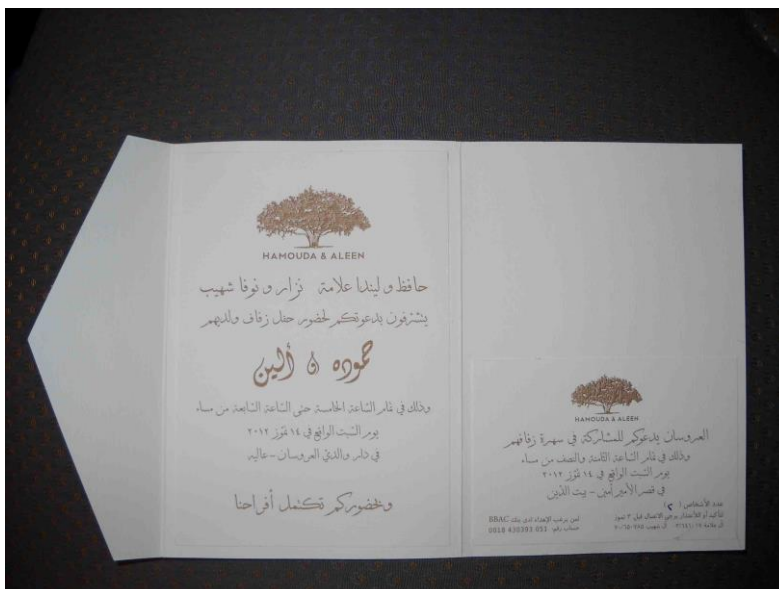 HAMOUDA & ALEEN
حافظ و ليندا علامة   نزار و نوفا شهيب
يتشرفون بدعوتكم لحضور حفل زفاف ولديهم
حموده & ألين
وذلك في تمام السّاعة الخامسة حتى السّاعة السّابعة من مساء
يوم السّبت الواقع في ١٤ تمّوز ٢٠١٢
في دار والديّ العروسان - عاليه
وبحضوركم تكتمل أفراحنا
HAMOUDA & ALEEN
العروسان يدعوكم للمشاركة في سهرة زفافهم
وذلك في تمام السّاعة الثامنة والنصف من مساء
يوم السّبت الواقع في ١٤ تمّوز ٢٠١٢
في قصر الأمير أمين - بيت الدّين
عدد الأشخاص (٢)
للتأكيد أو للأعتذار يرجى الاتصال قبل ٣ تموز
آل علامة ٠٣/٦٤١٠١٩ آل شهيب
لمن يرغب الإهداء لدى بنك BBAC
حساب رقم: 0818 430393 051